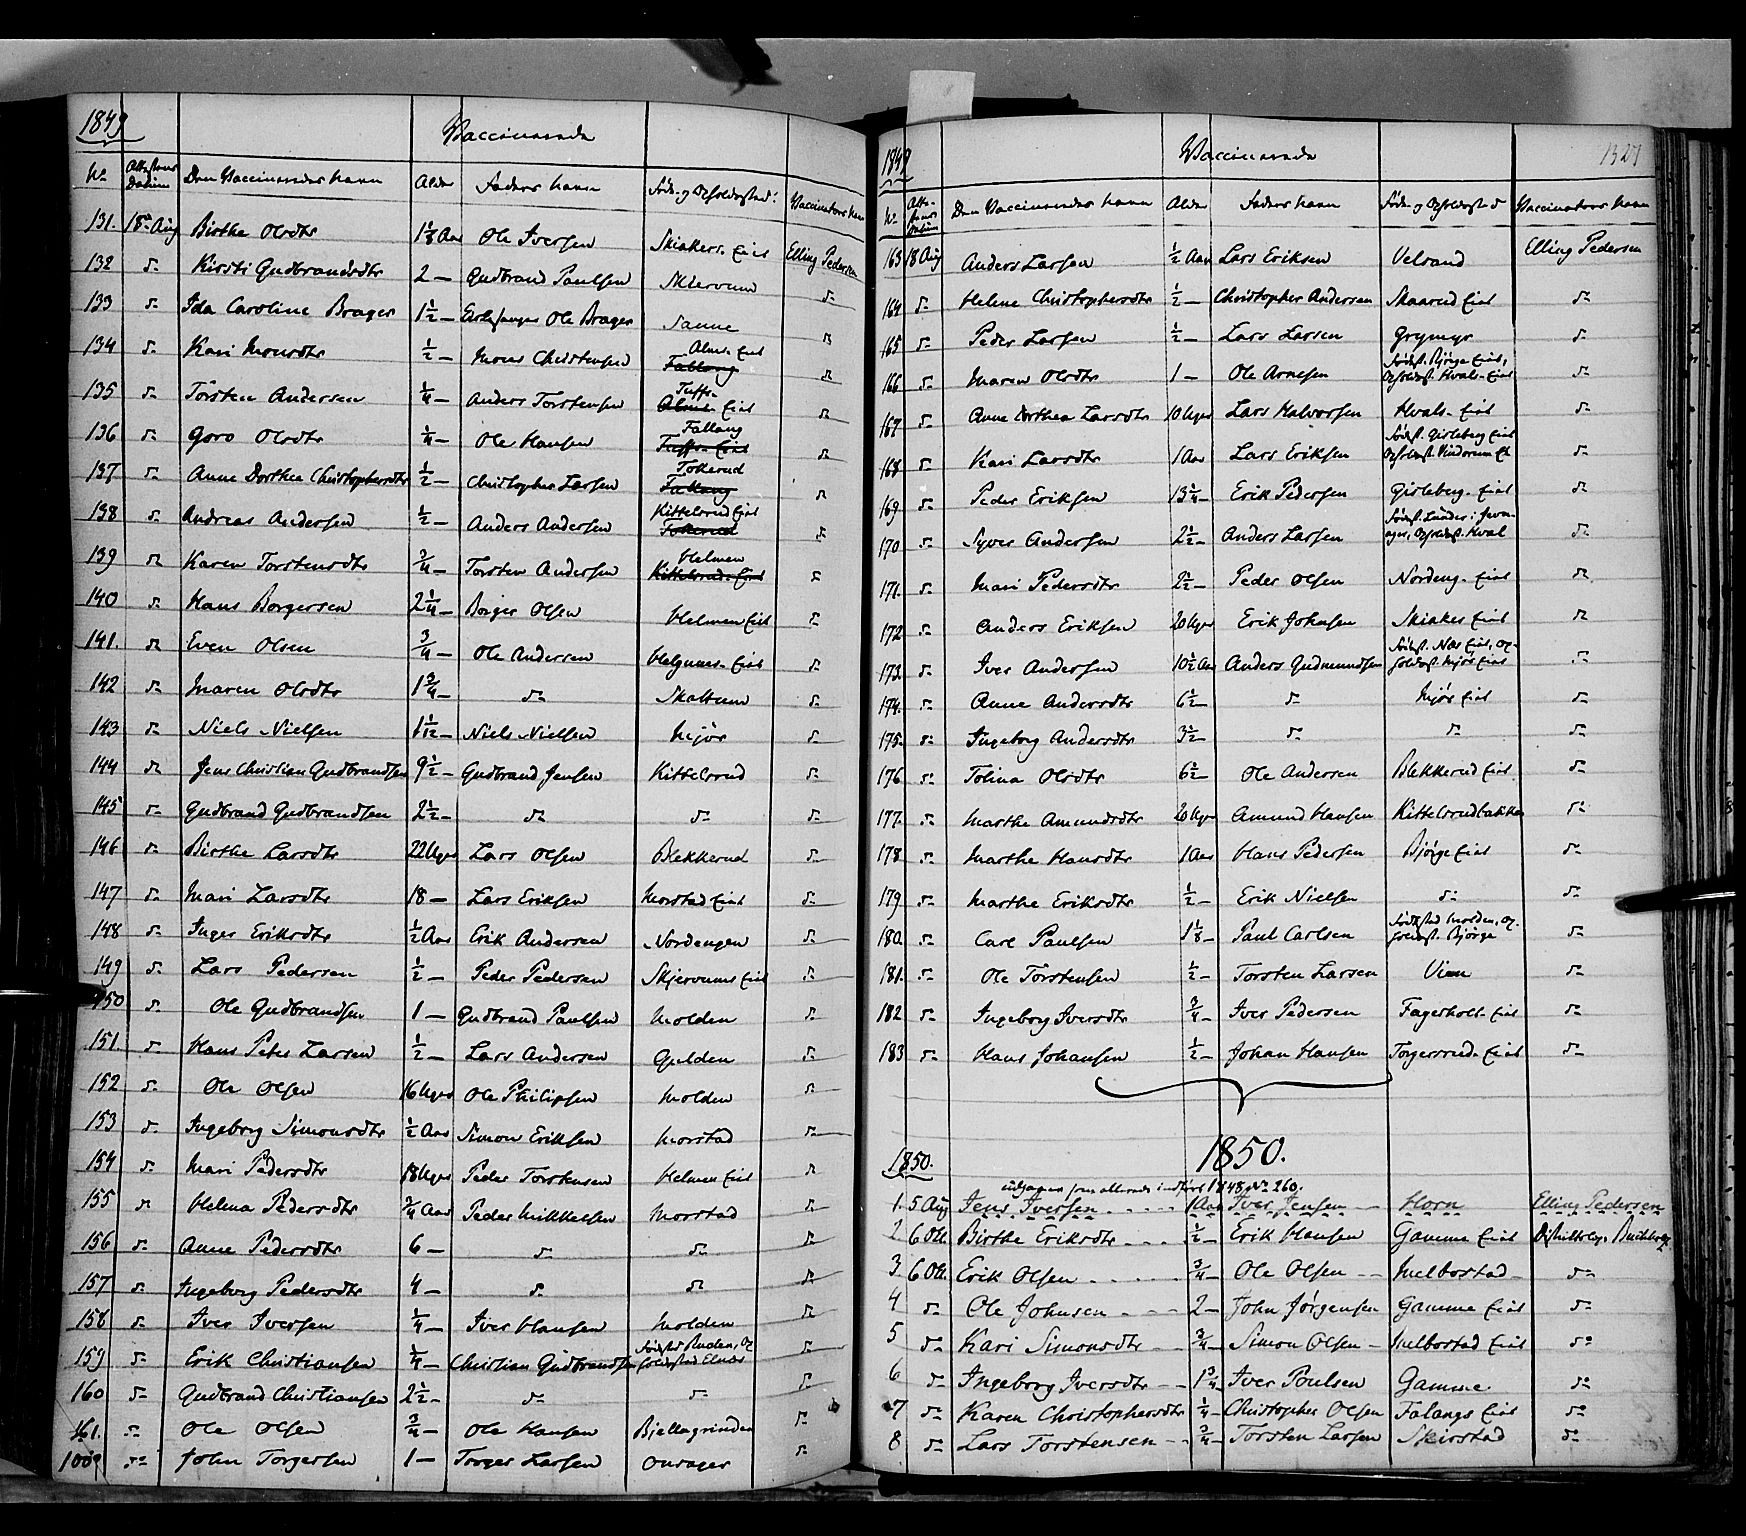 1849
Vaccinerede
No Attestens Datum Den Vaccineredes Navn Alder Faders Navn Føde- og Opholdssted: Vaccinateurs Navn
131. 18de Aug Birthe Olsdtr 1 1/8 Aar Ole Iversen Skiakers Eiet Elling Pedersen
132 do Kirsti Gudbrandsdtr 2 — Gudbrand Paulsen Skiervum do
133 do Ida Caroline Brager 1 1/2 — Ole Brager Sanne do
134 do Kari Monsdtr 1/2 — Mons Christensen Alms- Eiet Fallang do
135 do Torsten Andersen 1/4 — Anders Torstensen Tuffs- Alms- Eiet do
136 do Goro Olsdtr 1/4 — Ole Hansen Fallang Tuffs- Eiet do
137 do Anne Dorthea Christophersdtr 1/2 — Christopher Larsen Tokerud Fallang do
138 do Andreas Andersen 1/2 — Anders Andersen Kittelsrud Eiet Tokerud do
139 do Karen Torstensdtr 3/4 — Torsten Andersen Helmen Kittelsrud- Eiet do
140 do Hans Borgersen 2 1/4 — Borger Olsen Helmen Eiet do
141. do Even Olsen 3/4 — Ole Andersen Helgunes- Eiet do
142 do Maren Olsdtr 1 3/4 — do Skattum do
143 do Niels Nielsen 1 1/12 — Niels Nielsen Mjør do
144 do Jens Christian Gudbrandsen 9 1/2 — Gudbrand Jensen Kittelsrud do
145 do Gudbrand Gudbrandsen 2 1/2 — do do do
146 do Birthe Larsdtr 22 Uger Lars Olsen Blekkerud do
147 do Mari Larsdtr 18 — Lars Eriksen Morstad Eiet do
148 do Inger Eriksdtr 1/2 Aar Erik Andersen Nordengen do
149 do Lars Pedersen 1/2 — Peder Pedersen Skjervums Eiet do
150 do Ole Gudbrandsen 1 — Gudbrand Paulsen Molden do
151. do Hans Peter Larsen 1/2 — Lars Andersen Gulden do
152 do Ole Olsen 16 Uger Ole Philipsen Molden do
153 do Ingeborg Simonsdtr 1/2 Aar Simon Eriksen Morstad do
154 do Mari Pedersdtr 18 Uger Peder Torstensen Helmen Eiet do
155 do Helena Pedersdtr 3/4 Aar Peder Mikkelsen Morstad do
156 do Anne Pedersdtr 6 — do do do
157 do Ingeborg Pedersdtr 4 — do do do
158 do Iver Iversen 1/4 — Iver Hansen Molden do
159 do Erik Christiansen 1/4 — Christian Gudbrandsen Fødested Ruden, Opholdssted do
160 do Gudbrand Christiansen 2 1/2 — do do do
161. do Ole Olsen 3/4 — Ole Hansen Bjellagrinden do
do John Torgersen 1 — Torger Larsen Onsager do
1849
Vaccinerede
1327
No Attestens Datum Den Vaccineredes Navn Alder Faders Navn Føde- og Opholdssted Vaccinateurs Navn
163 18 Aug Anders Larsen 1/2 Aar Lars Eriksen Velsand Elling Pedersen
164 do Helene Christophersdtr 1/2 — Christopher Andersen Skaarud Eiet do
165 do Peder Larsen 1/2 — Lars Larsen Grymyr do
166 do Maren Olsdtr 1 — Ole Arnesen Fødest. Bjørge Eiet, Opholdst. Hvals- Eiet do
167 do Anne Dorthea Larsdtr 10 Uger Lars Halvorsen Hvals- Eiet do
168 do Kari Larsdtr 1 Aar Lars Eriksen Fødest. Gisleberg Eiet Opholdst. Vindorum Et do
169 do Peder Eriksen 13 1/4 — Erik Pedersen Gisleberg- Eiet do
170 do Syver Andersen 2 1/2 — Anders Larsen Fødest. Lunder i Jevnager, Opholdst. Hval do
171. do Mari Pedersdtr 2 1/2 — Peder Olsen Nordeng- Eiet do
172 do Anders Eriksen 20 Uger Erik Johnsen Skiaker Eiet do
173. do Iver Andersen 10 1/2 Aar Anders Gudmundsen Fødest. Næs Eiet, Opholdst. Mjør Eiet do
174. do Anne Andersdtr 6 1/2 — do Mjør Eiet do
175. do Ingeborg Andersdtr 3 1/2 — do do do
176 do Tolina Olsdtr 6 1/2 — Ole Andersen Blekkerud Eiet do
177. do Marthe Amundsdtr 20 Uger Amund Hansen Kittelsrudbakken do
178 do Marthe Hansdtr 1 Aar Hans Pedersen Bjørge Eiet do
179 do Marthe Eriksdtr 1/2 — Erik Nielsen do do
180. do Carl Paulsen 1 1/8 — Paul Carlsen Fødested Molden, Opholdst. Bjørge do
181. do Ole Torstensen 1/2 — Torsten Larsen Vien do
182 do Ingeborg Iversdtr 3/4 — Iver Pedersen Fagerholt- Eiet do
183 do Hans Johansen 1/2 — Johan Hansen Torgersrud- Eiet do
1850. 1850.
udgaaer som allerede indført 1848 No 260.
1. 5 Aug Jens Iversen 1 Aar Iver Jensen Horn Elling Pedersen
2 6 Okt. Birthe Eriksdtr 1/2 — Erik Hansen Gamme Eiet
3. 6 Okt. Erik Olsen 3/4 — Ole Olsen Melbostad do
4 do Ole Johnsen 2 — John Jørgensen Gamme Eiet do
5 do Kari Simonsdtr 3/4 — Simon Olsen Melbostad Eiet do
6 do Ingeborg Iversdtr 1 3/4 — Iver Poulsen Gamme do
7 do Karen Christophersdtr 1/4 — Christopher Olsen Falangs Eiet do
8 do Lars Torstensen 3/4 — Torsten Larsen Skirstad do